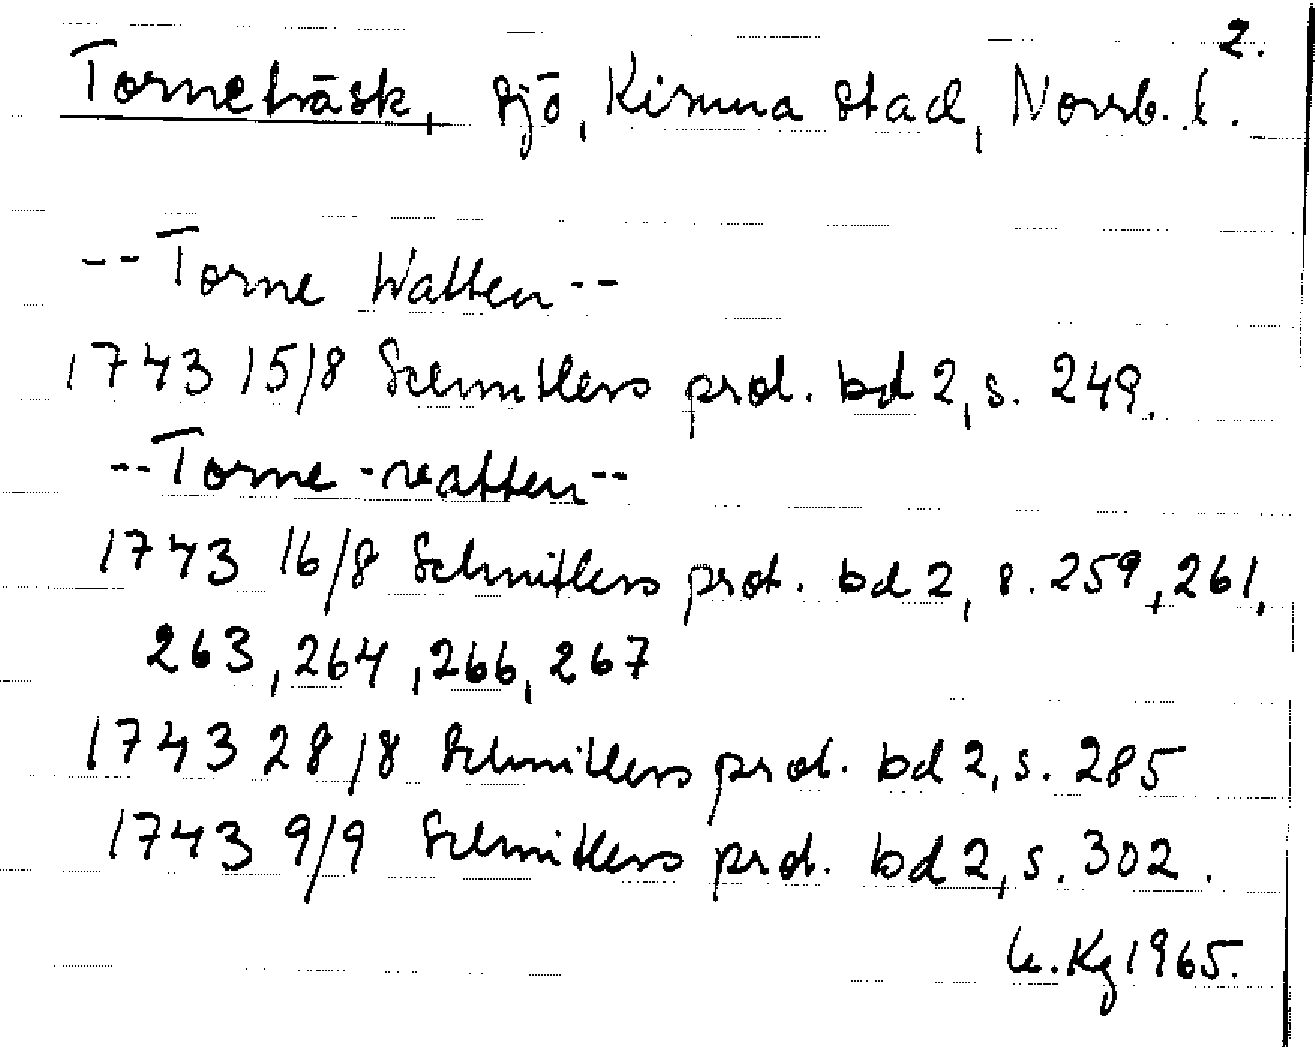 2.
Torneträsk, sjö, Kiruna stad, Norrb. l.
--Torne Watten--
1743 15/8 Schnitlers prot. bd 2, s. 249.
--Torne-vatten--
1743 16/8 Schnitlers prot. bd 2, s. 259, 261,
263, 264, 266, 267
1743 28/8 Schnitlers prot. bd 2, s. 285
1743 9/9 Schnitlers prot. bd 2, s. 302.
Kg 1965.